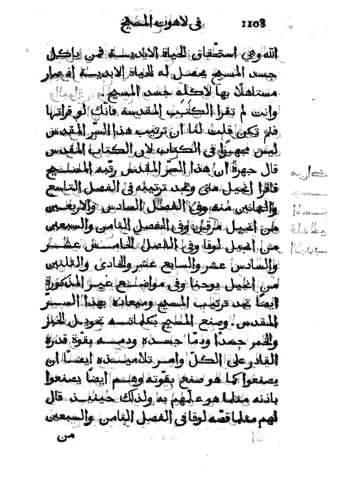 1108 في لاهوت المسيح
الله وهي استحقاق الحياة الابدية فمن ياكل
جسد المسيح يحصل له الحياة الابدية اذ صار
مستاهلًا بها لاكله جسد المسيح.
وانت لم تقرا الكتب المقدسة فانك لو قراتها
فلم تكن قلت لنا ان ترتيب هذا السرّ المقدس
ليس مجهرًا في الكتاب لان الكتاب المقدس
قال جهرة ان هذا السرّ المقدس رتّبه المسيح
فاقرا انجيل متى وتجد ترتيبه في الفصل التاسع
والثمانين منه وفي الفصل السادس والاربعين
من انجيل مرقس وفي الفصل الثامن والسبعين
من انجيل لوقا وفي الفصل الخامس عشر
والسادس عشر والسابع عشر والحادي والثلثين
من انجيل يوحنا وفي مواضع غير المذكورة
ايضًا تجد ترتيب المسيح وميعاده بهذا السرّ
المقدس. وصنع المسيح بكلماته تحويل الخبز
والخمر جسدًا ودمًا جسده ودمه بقوة قدرة
القادر على الكلّ وامر تلاميذه ايضًا ان
يصنعوا كما هو صنع بقوته وهم ايضًا يصنعوا
باذنه مثلما هو علمهم به ولذلك حينيذ قال
لهم مثلما قصّه لوقا في الفصل الثامن والسبعين
من